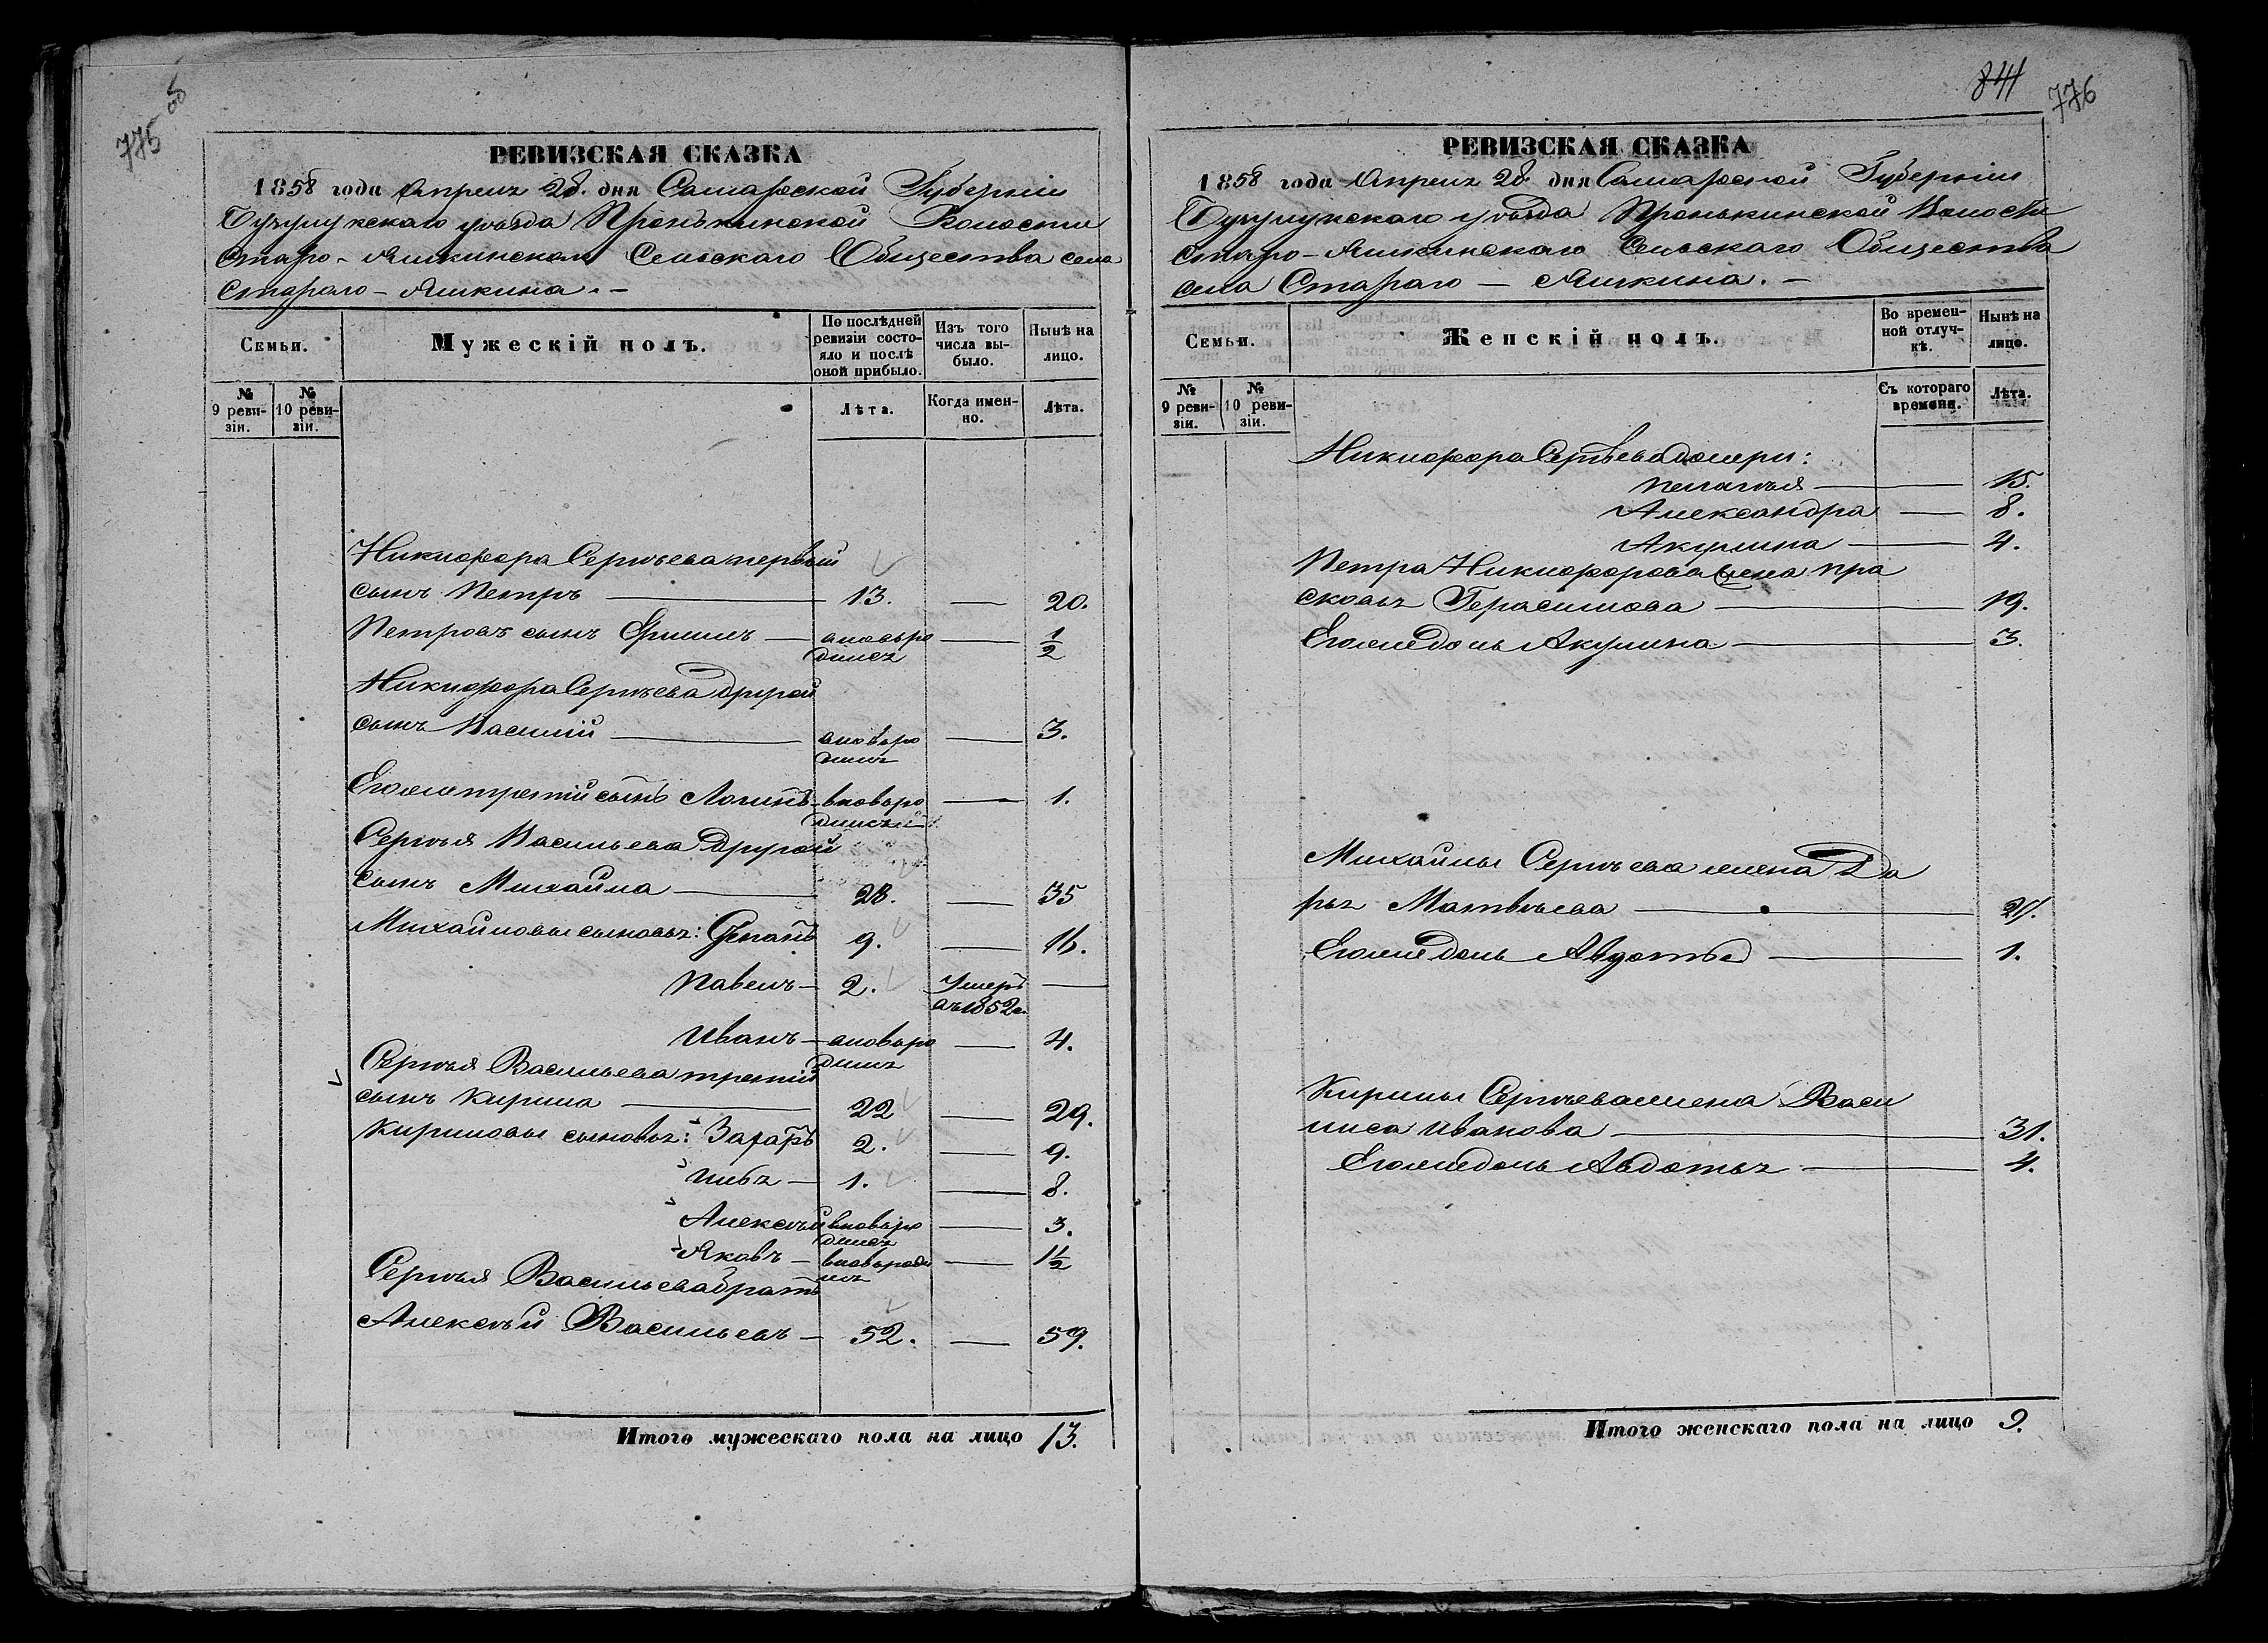 775 об
РЕВИЗСКАЯ СКАЗКА
1858 года Апреля 28. дня Самарской Губерніи
Бузулукскаго уѣзда Пронькинской Волости
Старо-Яшкинскаго Сельскаго Общества села
Стараго-Яшкина.-
Семьи.
Мужескій полъ.
По послѣдней ревизіи состояло и послѣ оной прибыло.
Изъ того числа выбыло.
Нынѣ на лицо.
№ 9 ревизіи.
№ 10 ревизіи.
Лѣта.
Когда именно.
Лѣта.
Никифора Сергѣева первый
сынъ Петръ — 13. — 20.
Петровъ сынъ — вновь ро — 1/2
дился
Никифора Сергѣева другой
сынъ Василий — вновь ро — 3.
дился
Его же третій сынъ Логинъ — вновь ро — 1.
дился
Сергѣя Васильева другой
сынъ Михайла — 28. — 35
Михайловы сыновья: Степанъ 9. — 16.
Павелъ — 2. Умеръ —
въ 1852 г.
Иванъ — вновь ро — 4.
дился
Сергѣя Васильева третий
сынъ Кирила — 22 — 29.
Кириловы сыновья: Захаръ 2. — 9.
1. — 8.
Алексѣй вновь ро — 3.
дился
Яковъ — вновь роди — 1 1/2
лся
Сергѣя Васильева братъ
Алексѣй Васильевъ — 52. — 59.
Итого мужескаго пола на лицо 13.
841
776
РЕВИЗСКАЯ СКАЗКА
1858 года Апреля 28 дня Самарской Губерніи
Бузулукскаго уѣзда Пронькинской Волости
Старо-Яшкинскаго Сельскаго Общества
села Стараго — Яшкина. -
Семьи.
Женскій полъ.
Во временной отлучкѣ.
Нынѣ на лицо.
№ 9 ревизіи.
№ 10 ревизіи.
Съ котораго времени.
Лѣта.
Никифора Сергѣева дочери:
Пелагея — 15.
Александра — 8.
Акулина — 4.
Петра Никифорова жена Пра
сковья Герасимова — 19.
Его же дочь Акулина — 3.
Михайлы Сергѣева жена Да
рья Матвѣева —
Его же дочь Авдотья — 1.
Кирилы Сергѣева жена Васи
лиса Иванова — 31.
Его же дочь Авдотья — 4.
Итого женскаго пола на лицо 9.